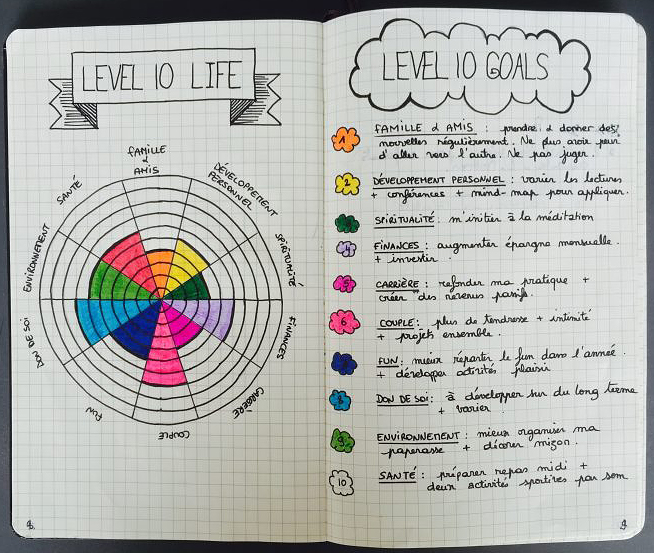 LEVEL 10 LIFE
FAMILLE
&
AMIS
DÉVELOPPEMENT
PERSONNEL
SPIRITUALITÉ
FINANCES
CARRIÈRE
COUPLE
FUN
DON DE SOI
ENVIRONNEMENT
SANTÉ
LEVEL 10 GOALS
1 FAMILLE & AMIS : prendre & donner des
nouvelles régulièrement. Ne plus avoir peur
d'aller vers l'autre. Ne pas juger.
2 DÉVELOPPEMENT PERSONNEL : varier les lectures
+ conférences + mind-map pour appliquer.
3 SPIRITUALITÉ : m'initier à la méditation
4 FINANCES : augmenter épargne mensuelle.
+ investir.
5 CARRIÈRE : refonder ma pratique +
créer des revenus passifs.
6 COUPLE : plus de tendresse + intimité
+ projets ensemble.
FUN : mieux répartir le fun dans l'année.
+ développer activités plaisir
8 DON DE SOI : à développer sur du long terme
+ varier.
9 ENVIRONNEMENT : mieux organiser ma
paperasse + décorer maison.
10 SANTÉ : préparer repas midi +
deux activités sportives par sem